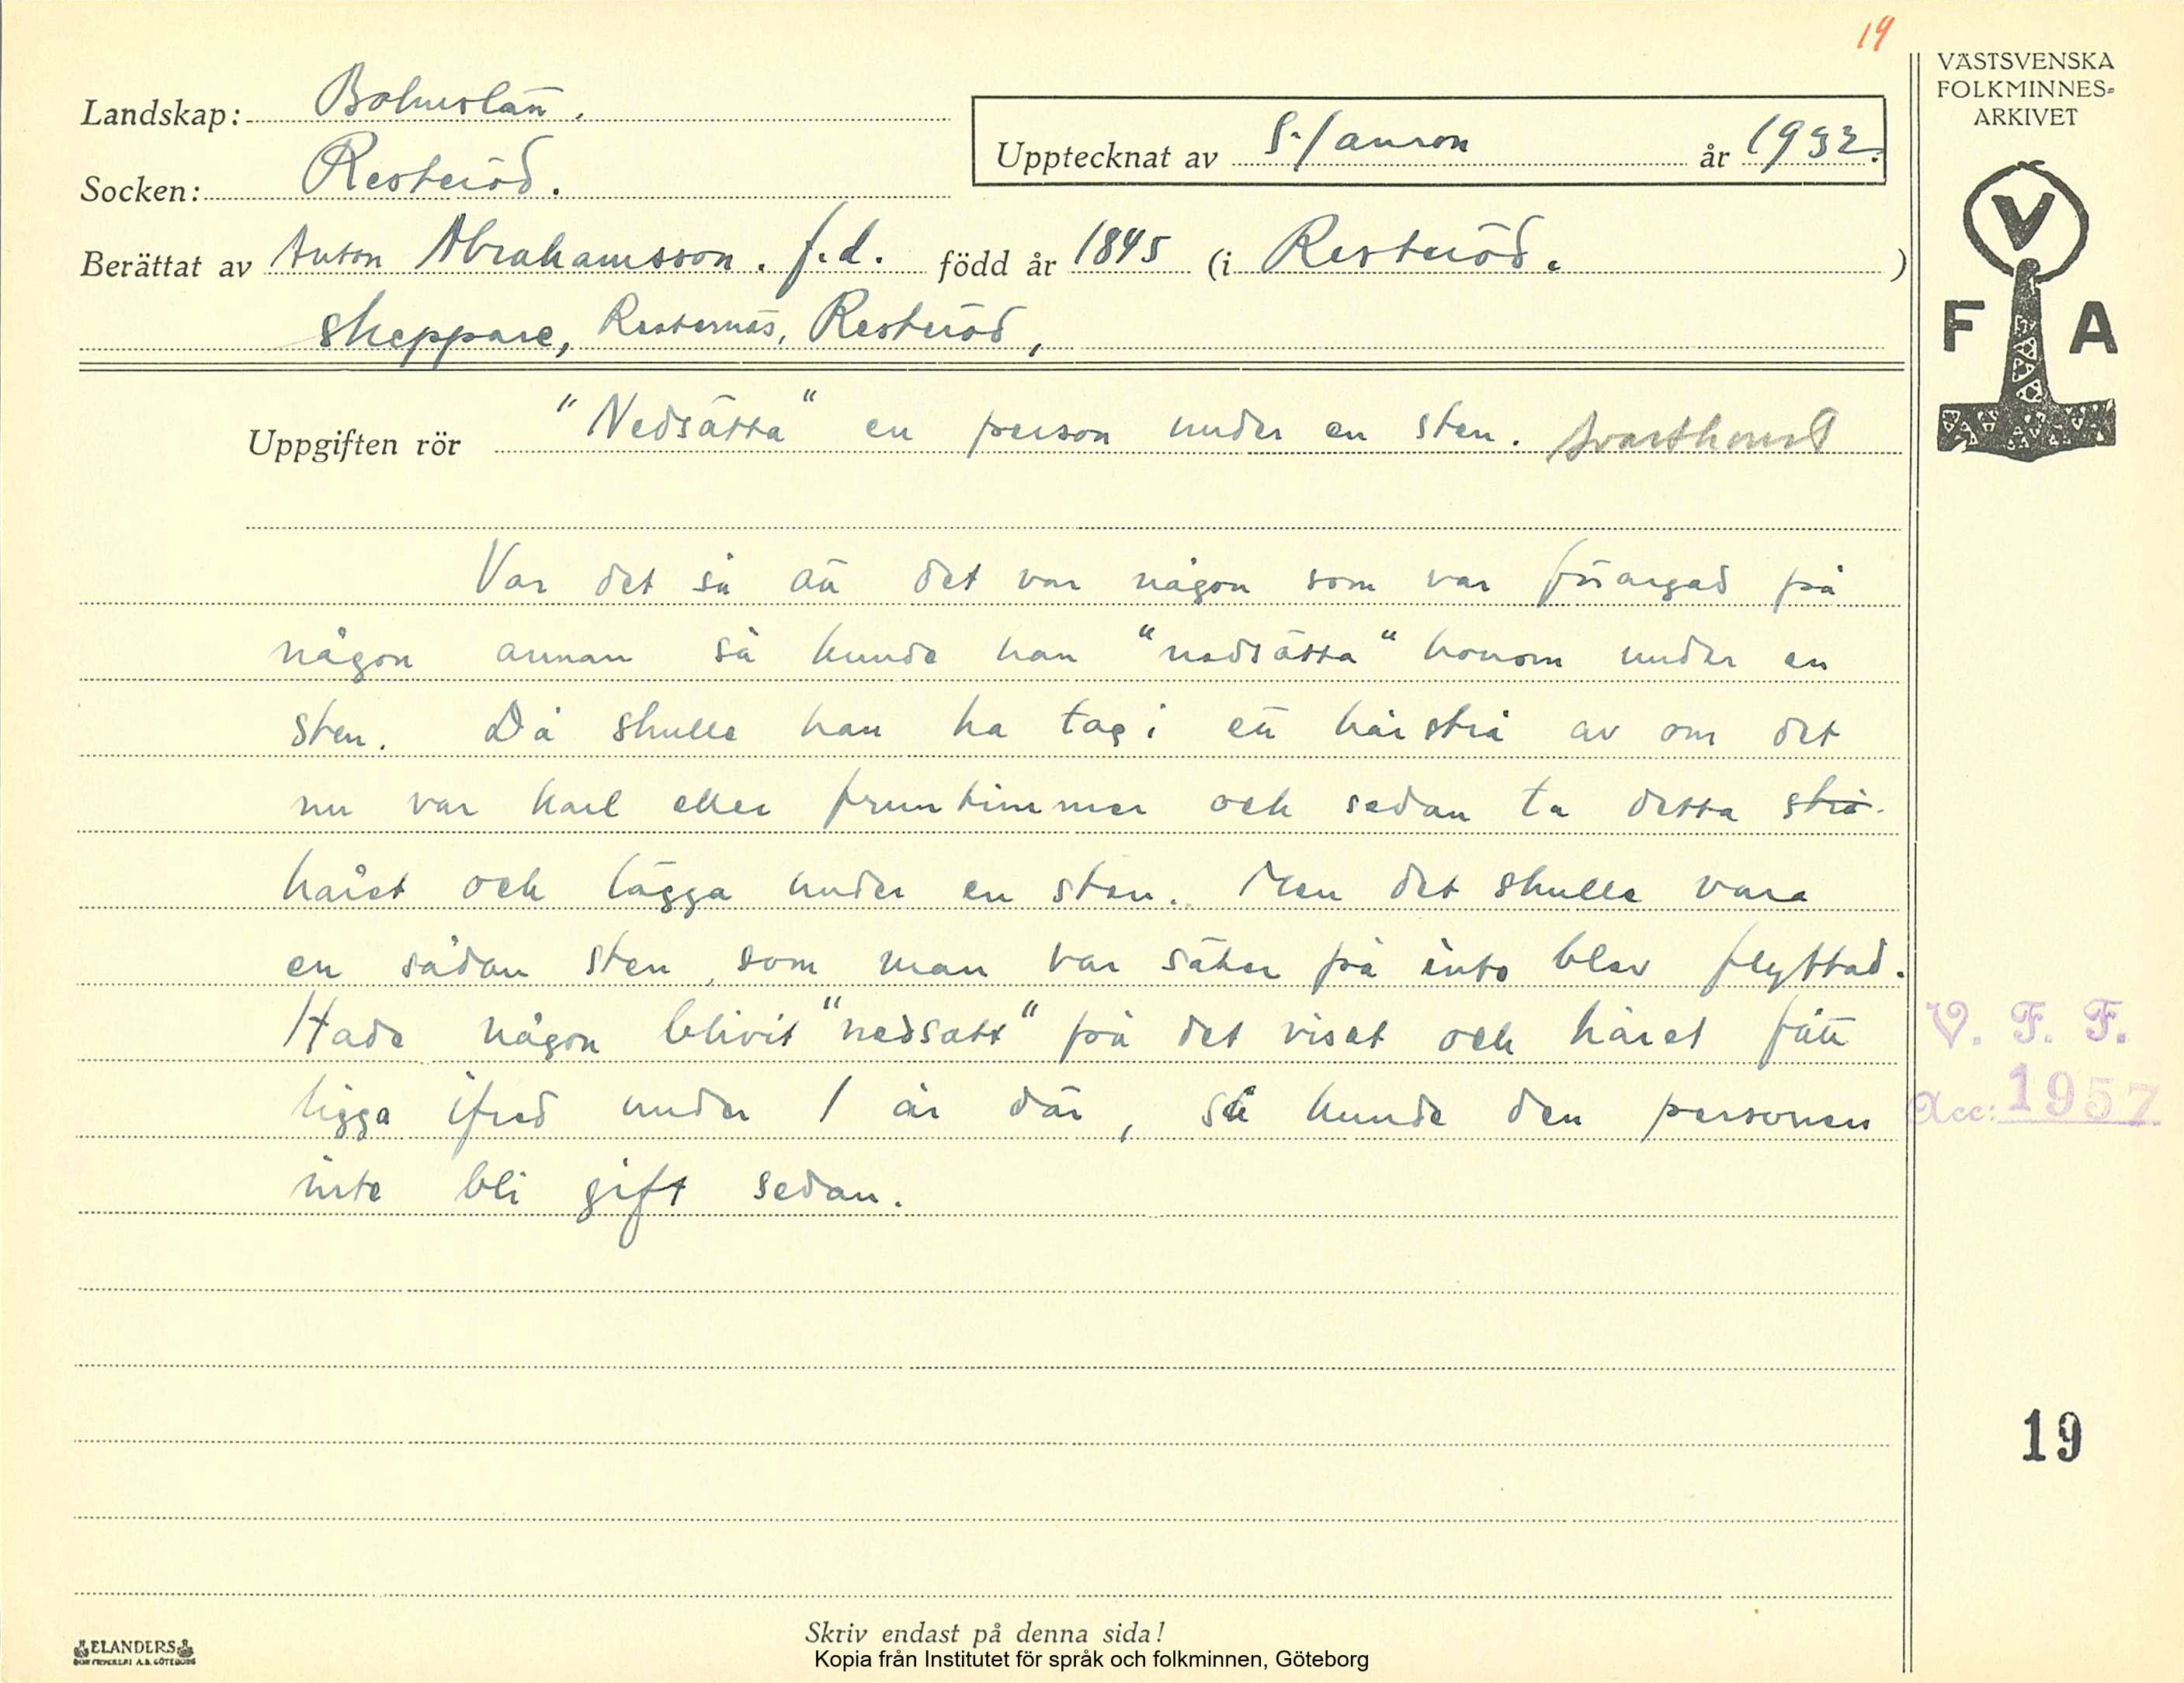 19
VÄSTSVENSKA
FOLKMINNES-
ARKIVET
Landskap: Bohuslän.
Upptecknat av S. Janson år 1932.
Socken: Resteröd.
Berättat av Anton Abrahamsson. f.d. född år 1845 (i Resteröd. )
skeppare, Resternäs, Resteröd,
V
F A
Uppgiften rör "Nedsätta" en person under en sten. svartkonst
Var det så att det var någon som var förargad på
någon annan så kunde han "nedsätta" honom under en
sten. Då skulle han ha tag i ett hårstrå av om det
nu var karl eller fruntimmer och sedan ta detta strå
håret och lägga under en sten. Men det skulle vara
en sådan sten, som man var säker på inte blev flyttad.
Hade någon blivit "nedsatt" på det viset och håret fått
ligga ifred under 1 år där, så kunde den personen
inte bli gift sedan.
V. F. F.
Acc: 1957
19
Skriv endast på denna sida!
ELANDERS
BOKTRYCKERI A.B. GÖTEBORG
Kopia från Institutet för språk och folkminnen, Göteborg